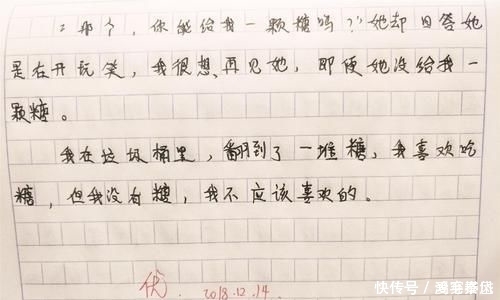 ：那个，你能给我一颗糖吗？”她却回答她
是在开玩笑，我很想再见她，即使她没给我一
颗糖。
我在垃圾桶里，翻到了一堆糖，我喜欢吃
糖，但我没有糖，我不应该喜欢的。
优 2018.12.14
快传号/